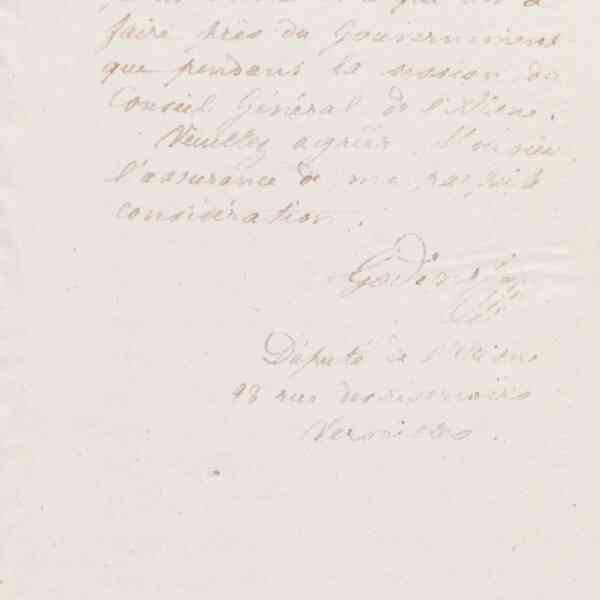 faire près du Gouvernement
que pendant la session du
Conseil Général de l'Aisne.
Veuillez agréer
l'assurance de ma
considération.
Godin
Député de l'Aisne
98 rue des réservoirs
Versailles.